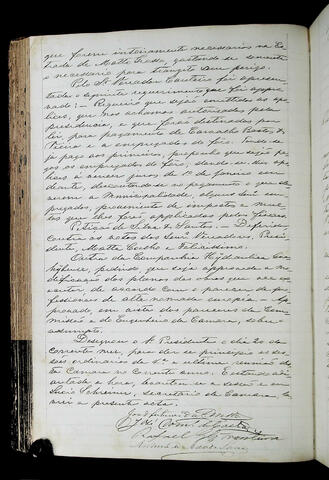 que forem inteiramente necessarios na Es-
trada de Matto Grosso, gastando se somente
o necessario para transito sem perigo.
Pelo Sr. Vereador Carneiro foi apresen-
tado o seguinte requerimento que foi appro-
vado: — Requeiro que sejão emittidas as apo-
lices, que nos achamos autorisados pela
presidencia, e que forão destinadas por
lei, para pagamento de Carvalho Bastos, &
Vieira e a empregados do fôro, sendo de
ja pago aos primeiros,
gos os empregados do fôro, dando-se as apo-
lices á vencer juros de 1º de Janeiro em
diante, descontando-se no pagamento o que de-
verem a Municipalidade, alguns dos em-
pregados, proveniente de impostos e mul-
tas que lhes foram applicadas pelos fiscaes.
Petição de Silva & Santos. — Deferida
contra os votos dos Snrs Vereadores, Presi-
dente, Motta Coelho e Felicissimo.
Cartas da Companhia Hydraulica
pedindo que seja approvada a mo-
dificação dos planos das obras que vão exe-
cutar, de accordo com o parecer de pro-
fissionaes de alta nomeada — Ap-
provada em vista dos pareceres da Com-
missão e do Engenheiro da Camara, sobre
o assumpto.
Designou o Sr. Presidente o dia 20 do
corrente mez, para dar-se principio as ses-
sões ordinarias da 4ª e ultima reunião des-
ta Camara no corrente anno. E estando adi-
antada a hora, levantou-se a sessão e eu
Lucio Schreiner, secretario da Camara, la-
vrei a presente acta.